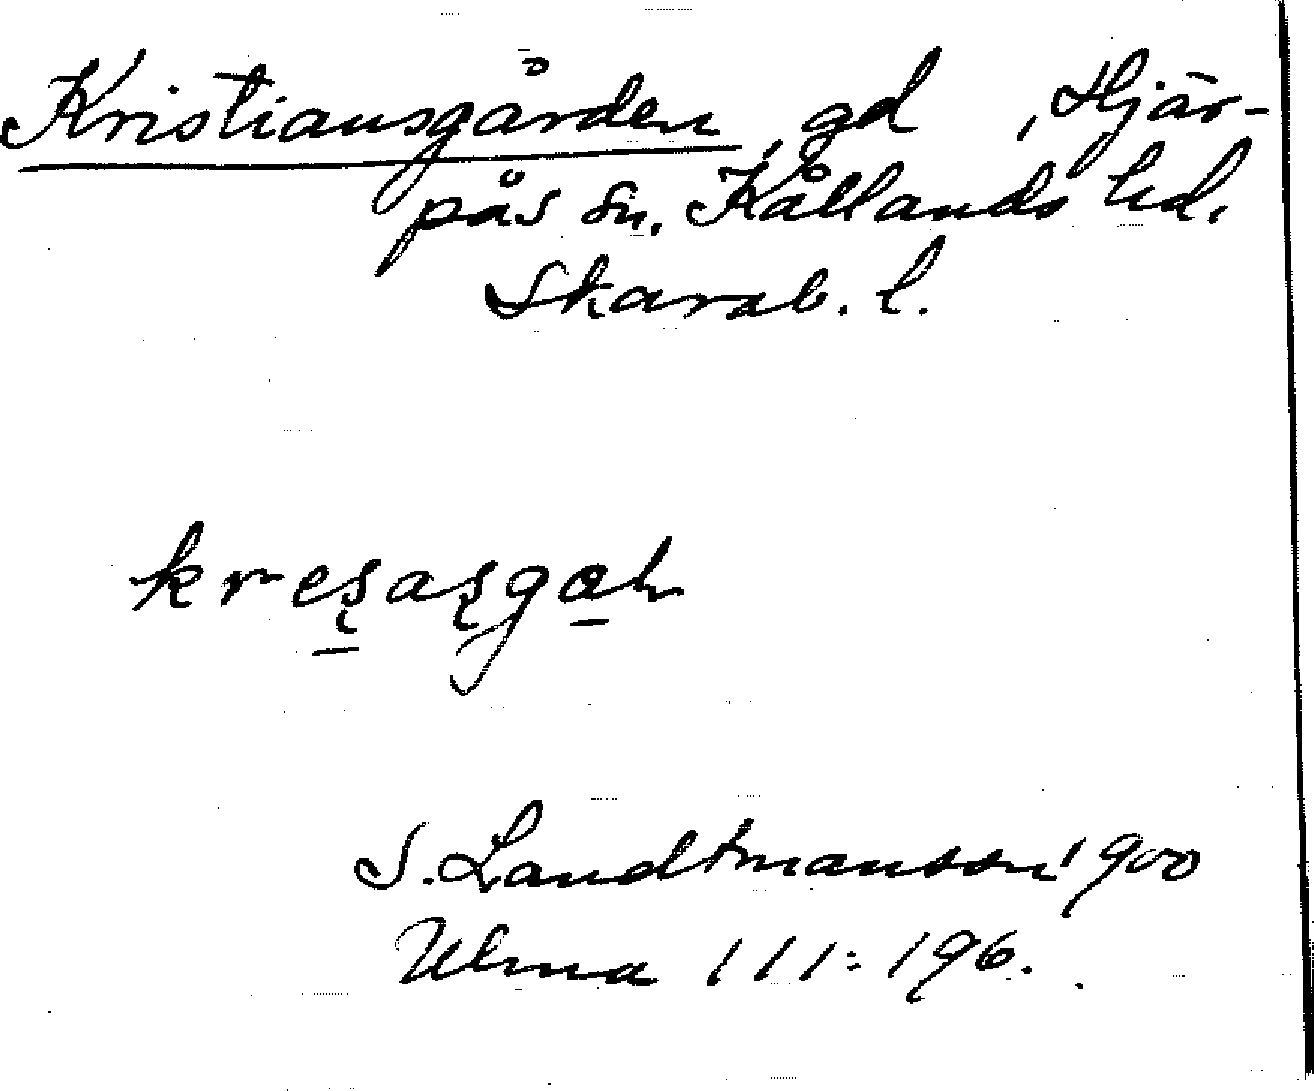 Kristiansgården, gd, Hjär-
pås sn. Kållands hd.
Skarab. l.
S. Landtmanson 1900
Ulma 111:196.